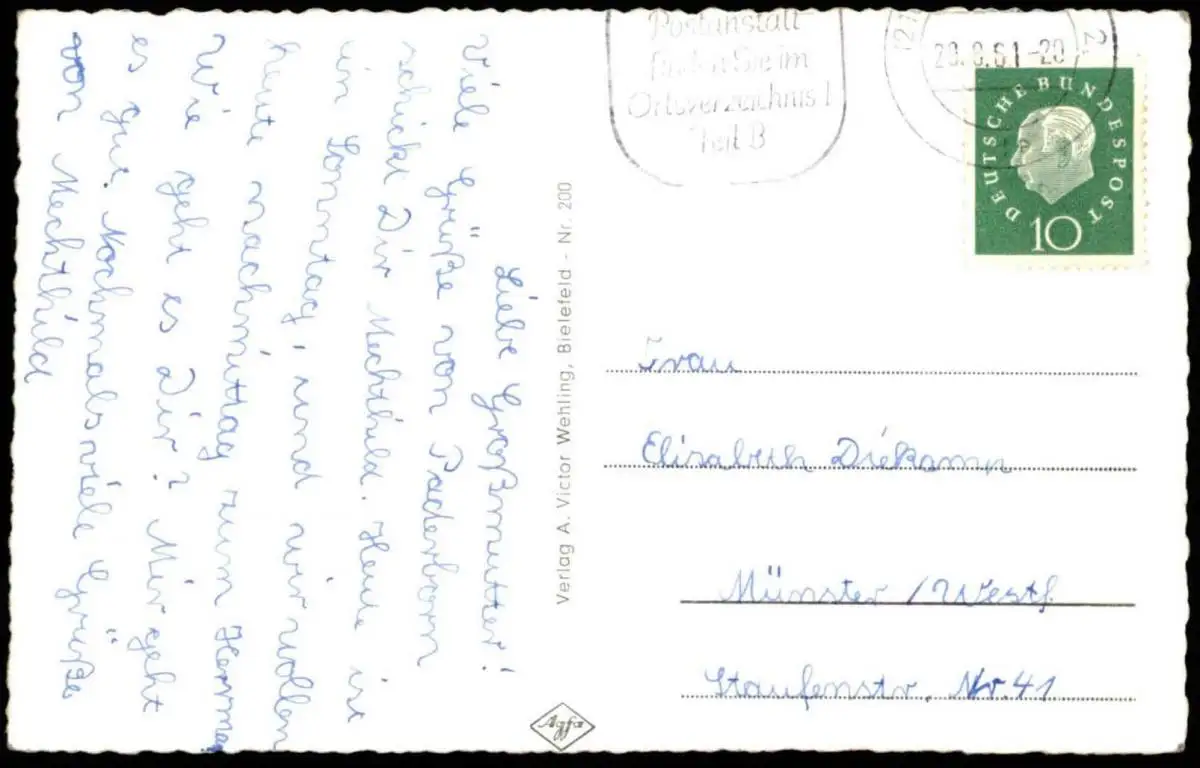 Liebe Großmutter!
Viele Grüße von Paderborn
schickt Dir Mechthild. Heute ist
ein Sonntag, und wir wollen
heute nachmittag zum Herrma
Wie geht es Dir? Mir geht
es gut. Nochmals viele Grüße
von Mechthild
Verlag A. Victor Wehling, Bielefeld - Nr. 200
Agfa
Postanstalt
finden Sie im
Ortsverzeichnis I
Teil B
61-20
DEUTSCHE BUNDESPOST
10
Frau
Elisabeth Diekamp
Münster/Westf.
Staufenstr. Nr. 41